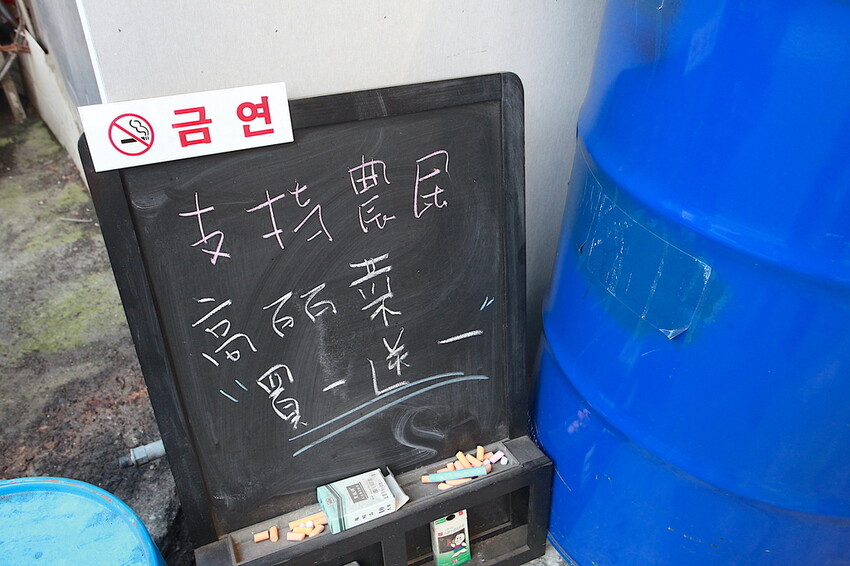 금연
支持農民
高百百菜
買一送一